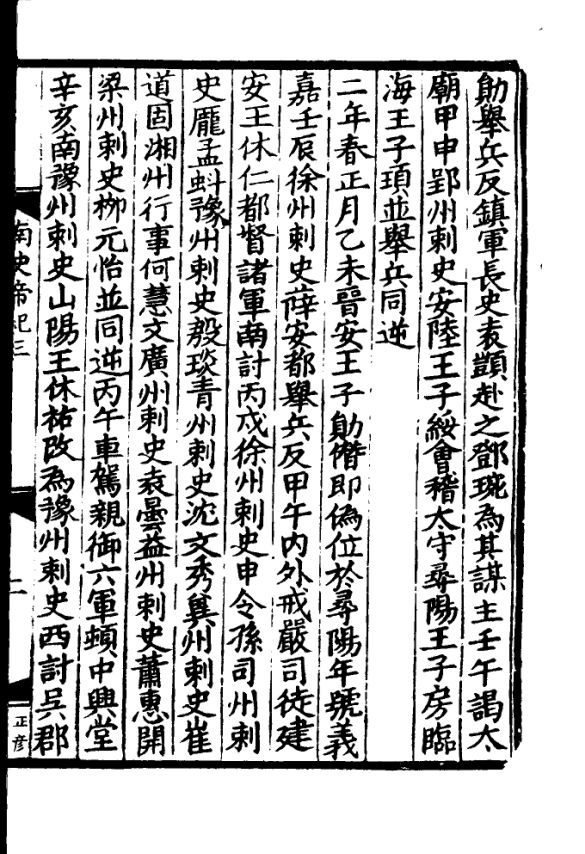 勛舉兵反鎮軍長史袁顗赴之鄧琬為其謀主壬午謁太
廟甲申郢州刺史安陸王子綏會稽太守尋陽王子房臨
海王子頊並舉兵同逆
二年春正月乙未晉安王子勛僭即偽位於尋陽年號義
嘉壬辰徐州刺史薛安都舉兵反甲午內外戒嚴司徒建
安王休仁都督諸軍南討丙戌徐州刺史申令孫司州刺
史龐孟蚪豫州刺史殷琰青州刺史沈文秀兾州刺史崔
道固湘州行事何慧文廣州刺史袁曇益州刺史蕭惠開
梁州刺史栁元怡並同逆丙午車駕親御六軍頓中興堂
辛亥南豫州刺史山陽王休祐改為豫州刺史西討吳郡
南史帝紀三
二
正彦